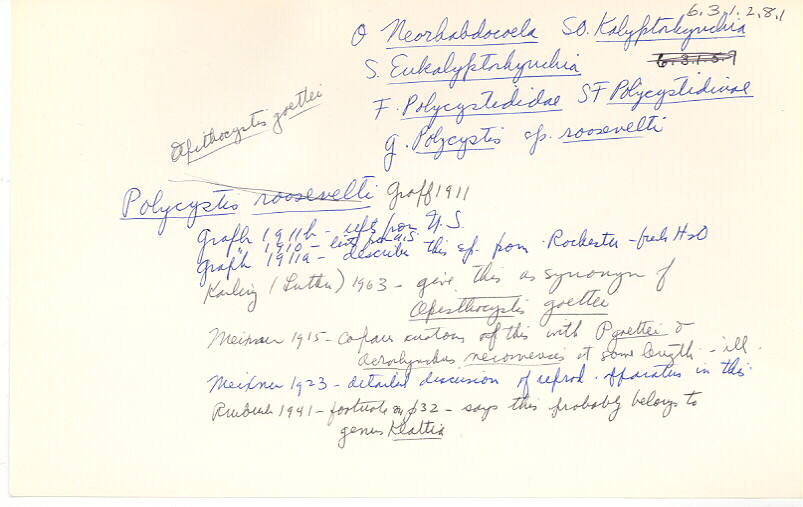 6.3.1.2.8.1
O Neorhabdocoela SO. Kalyptorhynchia
S. Eukalyptorhynchia 6.3.1.5.9
F. Polycystididae SF Polycystidinae
g. Polycystis sp. roosevelti
Opisthocystis goettei
Polycystis roosevelti Graff 1911
Graff 1911b - lists from U.S.
" 1910 - lists for U.S.
Graff 1911a - describes this sp. from Rochester - fresh H2O
Karling (Luther) 1963 - give this as synonym of
Opisthocystis goettei
Meixner 1915 - compares anatomy of this with P goettei &
Acrorhynchus neocomensis at some length - ill.
Meixner 1923 - detailed discussion of reprod. apparatus in this.
1941 - footnote on p32 - says this probably belongs to
genus Klattia